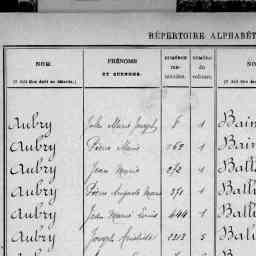 RÉPERTOIRE ALPHABÉT
NOM
PRÉNOMS
ET SURNOMS.
NUMÉROS
NUMÉRO
du
volume.
NO
Aubry Jules Marie Joseph 6 1 Bain
Aubry Pierre Marie 162 1 Bain
Aubry Jean Marie 272 1 Ball
Aubry Pierre Auguste Marie 371 1 Ball
Aubry Jean Marie Louis 444 1 Ball
Aubry Joseph Aristide 2213 5 Bal